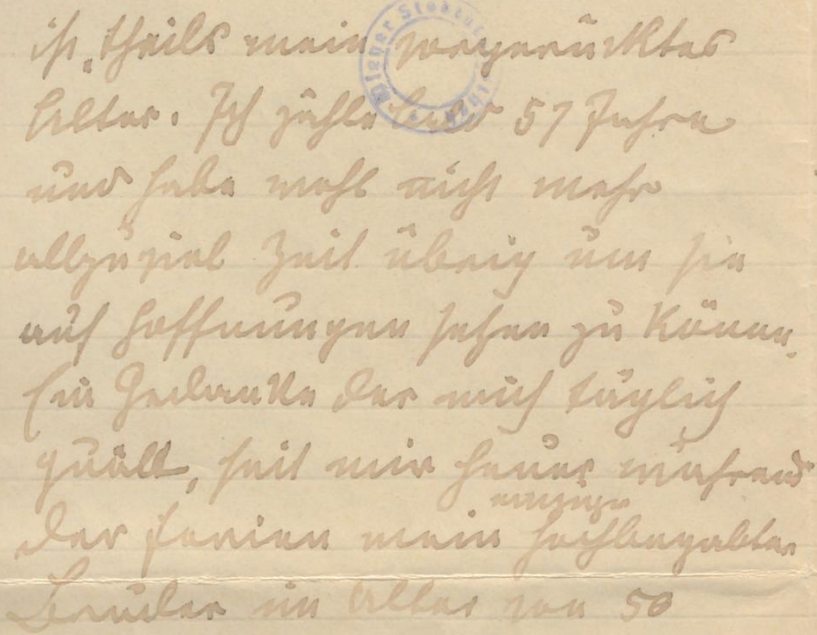 ist, theils mein vorgerücktes
Alter. Ich zähle bald 57 Jahre
und habe wohl nicht mehr
allzuviel Zeit übrig um sie
auf Hoffnungen setzen zu können.
Ein Gedanke der mich täglich
quält, seit mir heuer während
der Ferien mein einziger hochbegabter
Bruder im Alter von 50